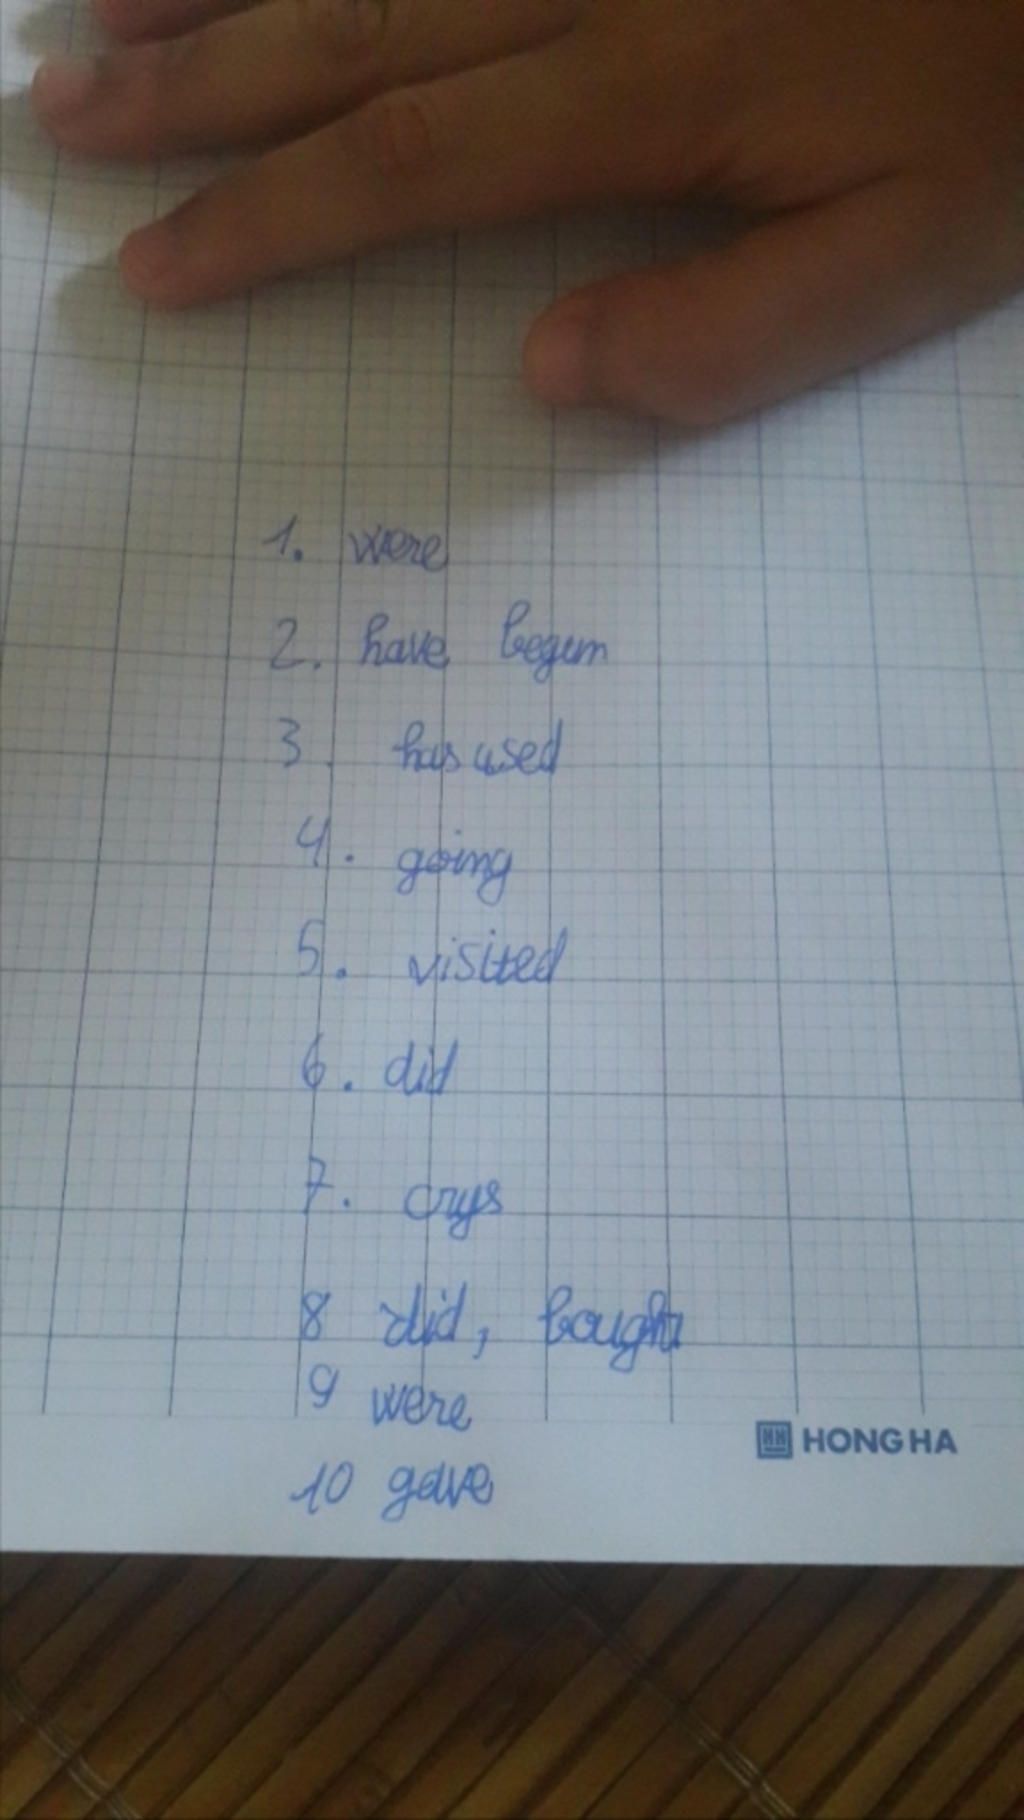 1. were
2. have begun
3. has used
4. going
5. visited
6. did
7. crys
8 did, bought
9 were
HONG HA
10 gave